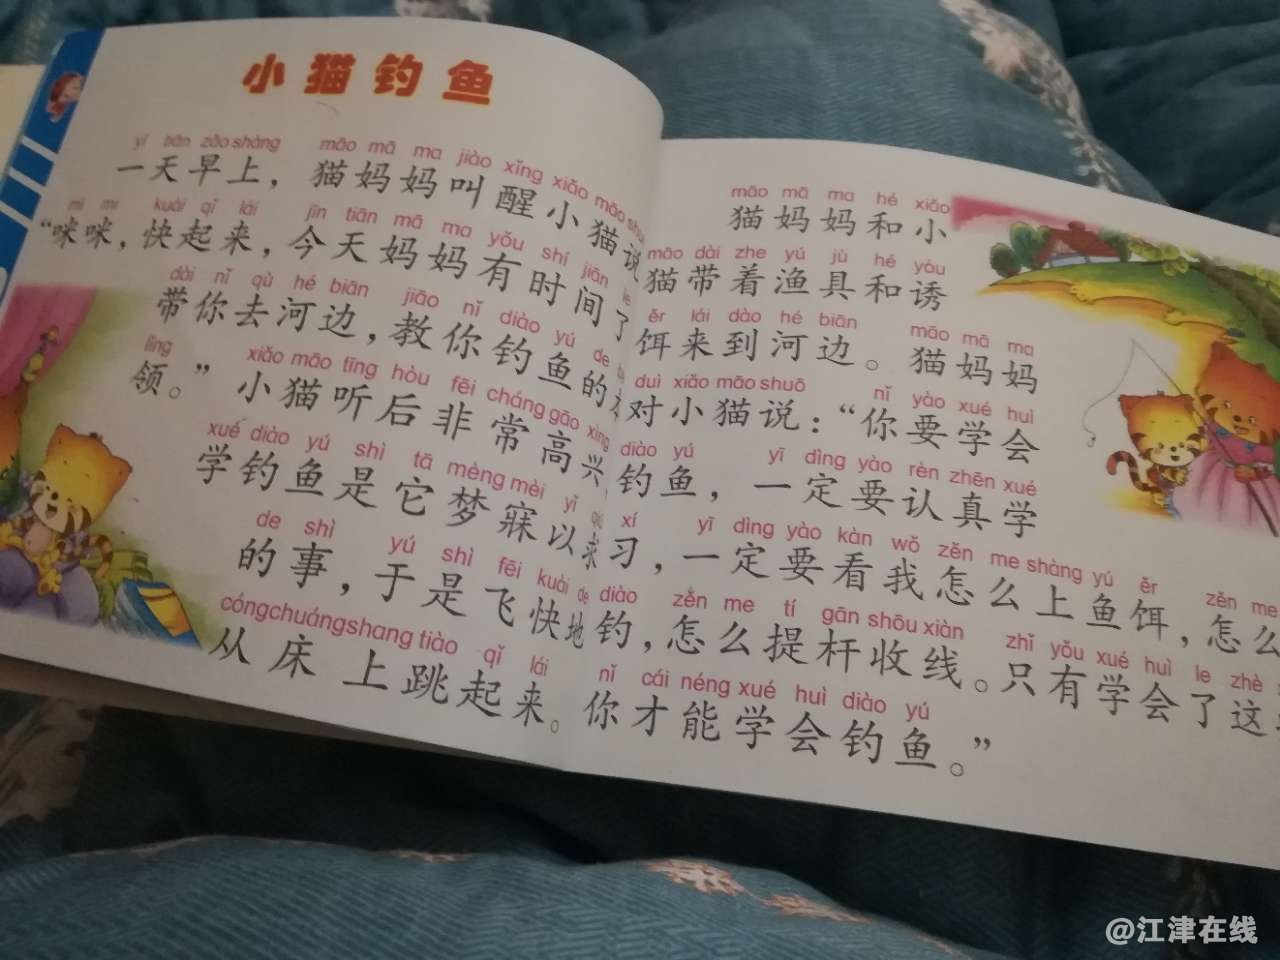 小猫钓鱼
yī tiān zǎo shàng māo mā ma jiào xǐng xiǎo māo shuō
一天早上，猫妈妈叫醒小猫说
mī mī kuài qǐ lái jīn tiān mā ma yǒu shí jiān le
“咪咪，快起来，今天妈妈有时间了
dài nǐ qù hé biān jiāo nǐ diào yú de
带你去河边，教你钓鱼的
lǐng xiǎo māo tīng hòu fēi cháng gāo xìng
领。”小猫听后非常高兴
xué diào yú shì tā mèng mèi yǐ qiú
学钓鱼是它梦寐以求
de shì yú shì fēi kuài de
的事，于是飞快地
cóng chuáng shang tiào qǐ lái
从床上跳起来。
māo mā ma hé xiǎo
猫妈妈和小
māo dài zhe yú jù hé yòu
猫带着渔具和诱
ěr lái dào hé biān māo mā ma
饵来到河边。猫妈妈
duì xiǎo māo shuō nǐ yào xué huì
对小猫说：“你要学会
diào yú yī dìng yào rèn zhēn xué
钓鱼，一定要认真学
xí yī dìng yào kàn wǒ zěn me shàng yú ěr zěn me
习，一定要看我怎么上鱼饵，怎么
diào zěn me tí gān shōu xiàn zhǐ yǒu xué huì le zhè
钓，怎么提杆收线。只有学会了这
nǐ cái néng xué huì diào yú
你才能学会钓鱼。”
@江津在线